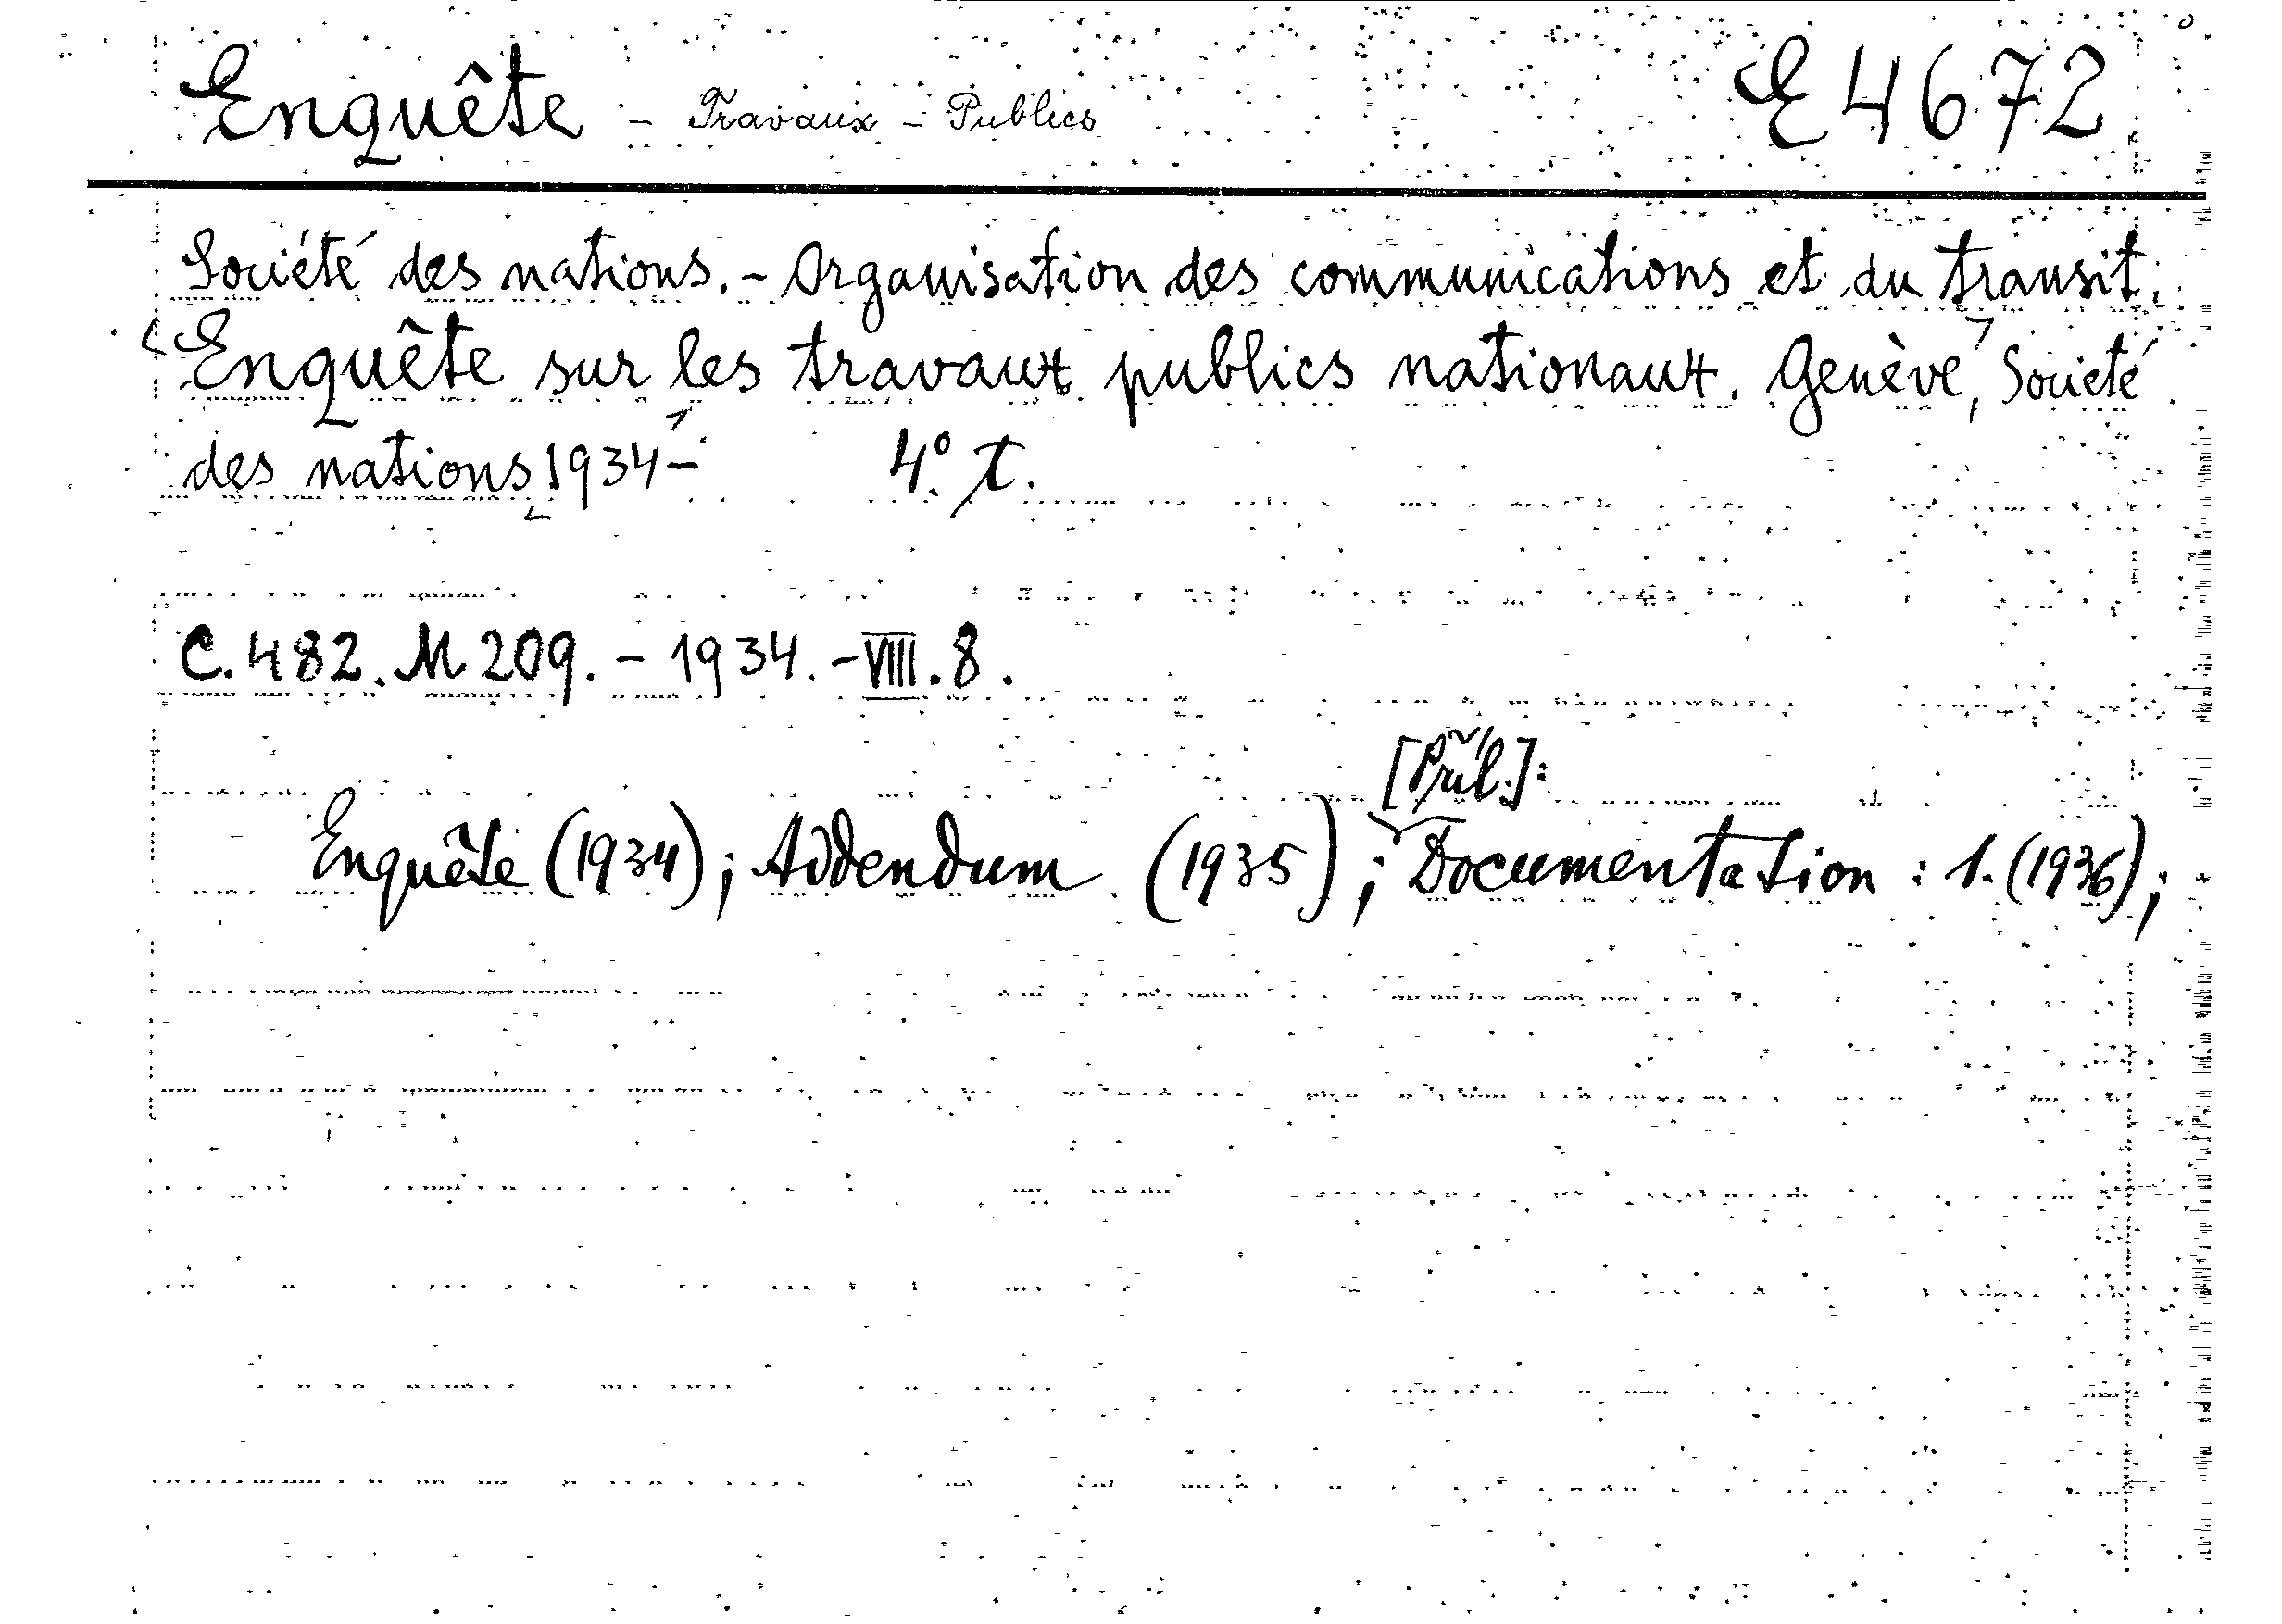 Enquête - Travaux - Publics E 4672
Société des nations. - Organisation des communications et du transit.
Enquête sur les travaux publics nationaux. Genève, Société
des nations, 1934- 4°.
C.482.M 209. - 1934. - VIII. 8.
[Příl.]:
Enquête (1934); Addendum (1935); Documentation : 1. (1936);